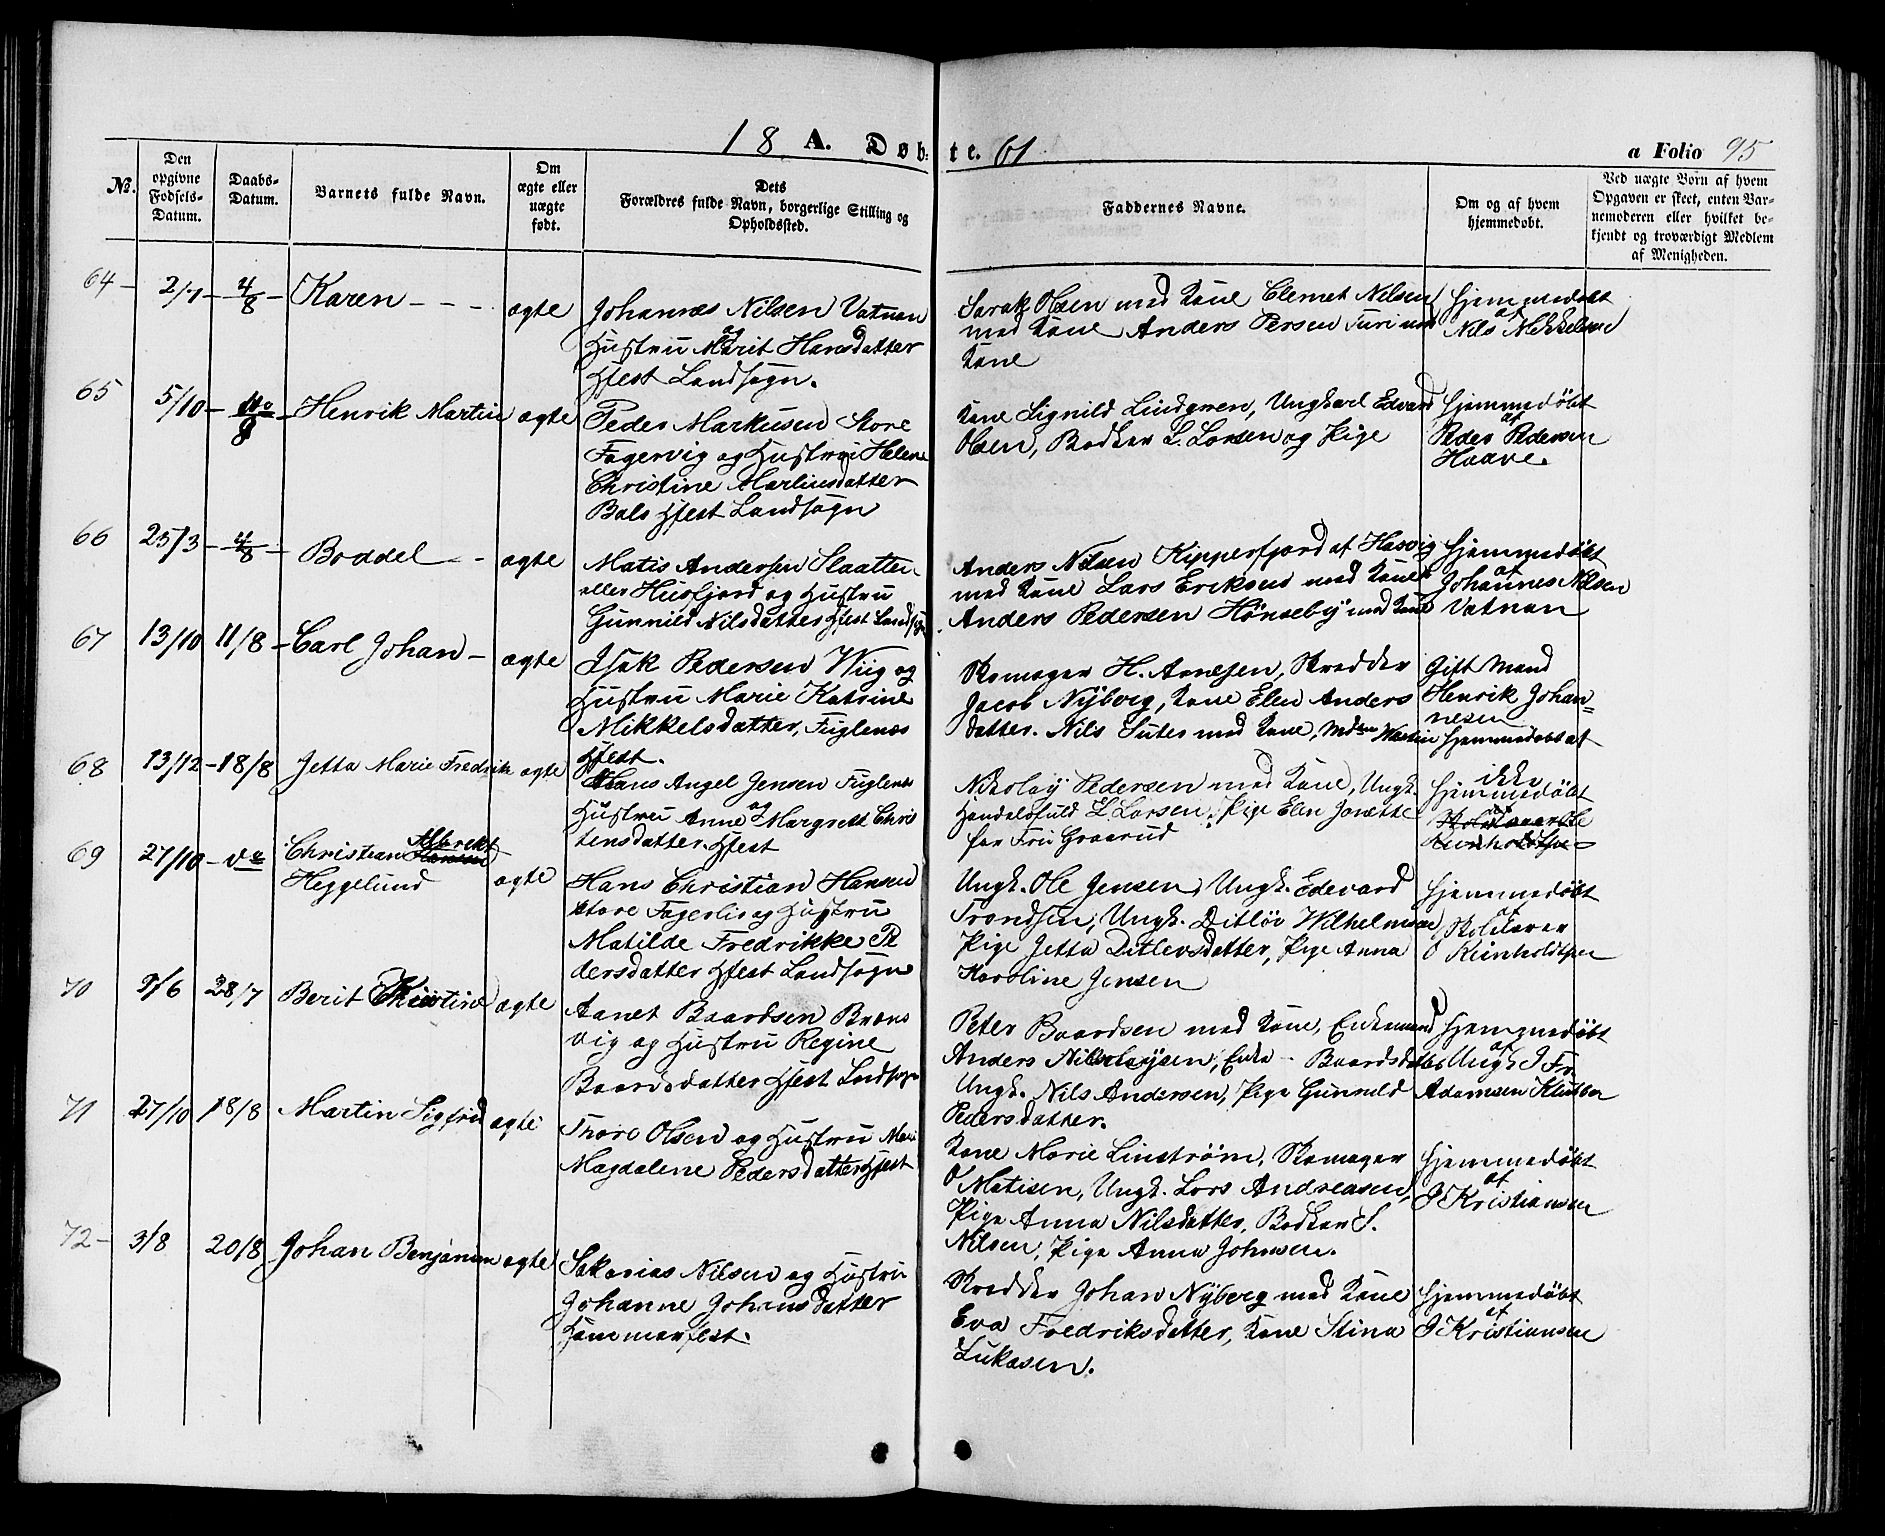 18 A. Døb-
te. 61
a Folio 95
No.
Den
opgivne
Fødsels-
Datum.
Daabs-
Datum.
Barnets fulde Navn.
Om
ægte eller
uægte
født.
Dets
Forældres fulde Navn, borgerlige Stilling og
Opholdssted.
Faddernes Navne.
Om og af hvem
hjemmedøbt.
Ved uægte Børn af hvem
Opgaven er skeet, enten Bar-
nemoderen eller hvilket be-
kjendt og troværdigt Medlem
af Menigheden.
64 2/7 4/8 Karen ægte
Johannes Nilsen Vatnan
og
Hustru Marit Hansdatter
Hfest Landsogn.
Sarak Olsen med Kone Clemet Nilsen
med Kone Anders Persen Turi med
Kone
Hjemmedøbt
af
Nils Mikkelsen
65 5/10 Henrik Martin ægte
Peder Markusen Store
Fagervig og Hustru Helene
Christine Martinsdatter
Bals Hfest Landsogn
Kone Signild Lindgren, Ungkarl Edvard
Olsen, Bødker L. Larsen og Pige
Hjemmedøbt
af
Peder Pedersen
Haave.
66 25/3 4/8 Boddel ægte
Matis Andersen Slaatten
eller Husfjord og Hustru
Gunnild Nilsdatter Hfest Landsogn
Anders Nilsen Kipperfjord af Hasvig
med Kone Lars Eriksen med Kone
Anders Pedersen Hönseby med Kone
Hjemmedøbt
af
Johannes Nilsen
Vatnan
67 13/10 11/8 Carl Johan ægte
Isak Pedersen Wiig og
Hustru Marie Katrine
Mikkelsdatter, Fuglenes
Hfest.
Skomager H. Arnesen, Skredder
Jacob Nÿberg, Kone Elen Anders
datter. Nils Suter med Kone, Mdm Martin
Gift Mand
Henrik Johan=
nesen
Hjemmedøbt af
68 13/12 18/8 Jetta Marie Fredrike ægte
Hans Angel Jensen Fuglenes
og
Hustru Anne Margrett Chris
tensdatter Hfest
Nikolaÿ Pedersen med Kone, Ungk.
Handelsfuld L Larsen, Pige Elen Jonette
for Fru Graarud
ikke
Hjemmedøbt
af
69 27/10 do Christian Albrekt
Heggelund ægte
Hans Christian Hansen
Store Fagerlis og Hustru
Matilde Fredrikke Pe
dersdatter Hfest Landsogn
Ungk. Ole Jensen, Ungk. Edevard
Trondsen, Ungk. Ditløv Wilhelmsen
Pige Jetta Ditlevsdatter, Pige Anna
Karoline Jensen
Hjemmedøbt
af
Skolelærer
Reinholdtsen
70 9/6 28/7 Berit Kristine ægte
Aanet Baardsen Bræns
vig og Hustru Regine
Baardsdatter Hfest Lndsogn
Peter Baardsen med Kone, Enkemand
Anders Nikolaÿsen, Enke - Baardsdatter
Ungk. Nils Andersen, Pige Gunneld
Pedersdatter.
Hjemmedøbt
af
Ungk J Fr.
Adamsen Klubben
71 27/10 18/8 Martin Sigfrid ægte
Thore Olsen og Hustru Mari
Magdalene Pedersdatter Hfest
Kone Marie Linström, Skomager
O Matisen, Ungk. Lars Andreasen,
Pige Anna Nilsdatter, Bødker S.
Nilsen, Pige Anna Johnsen.
Hjemmedøbt
af
J Kristiansen
72 3/8 20/8 Johan Benjamin ægte
Sakarias Nilsen og Hustru
Johanne Johansdatter
Hammerfest.
Skredder Johan Nÿberg med Kone
Eva Fredriksdatter, Kone Stina
Lukasen.
Hjemmedøbt
af
J Kristiansen